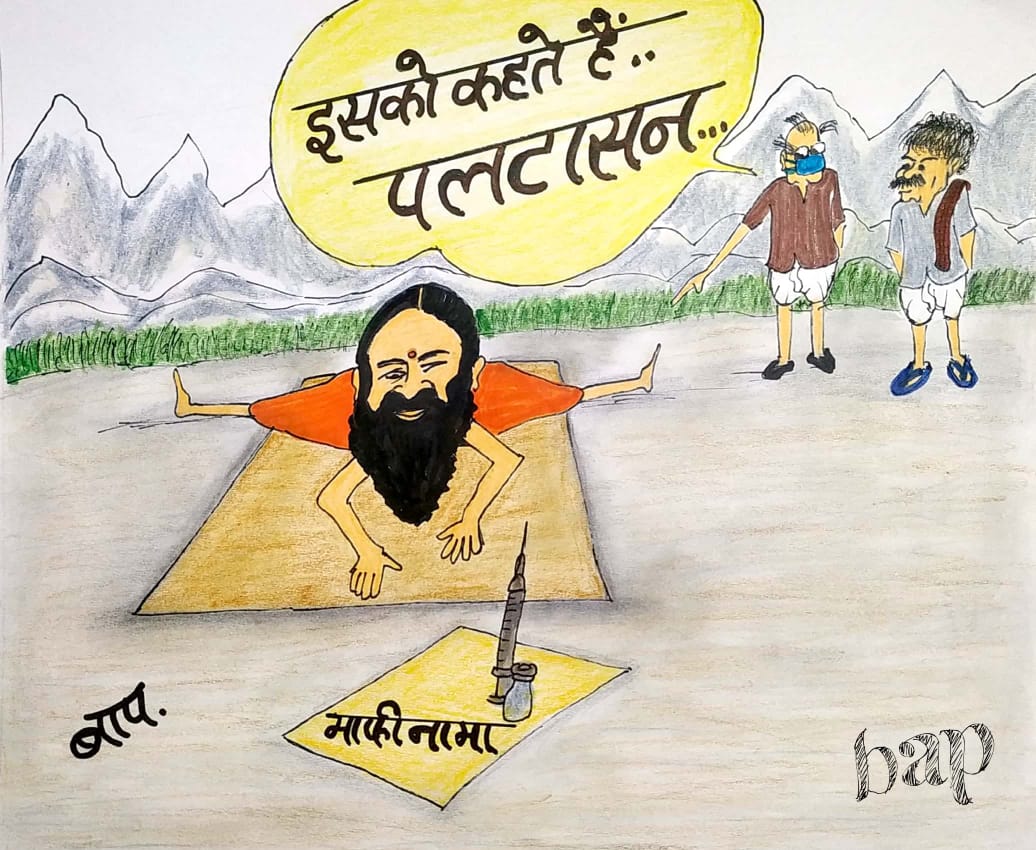 इसको कहते हैं..
पलटासन...
माफीनामा
बाप.
bap